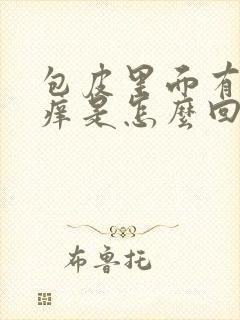 包皮里面有
痒是怎麼回
布鲁托